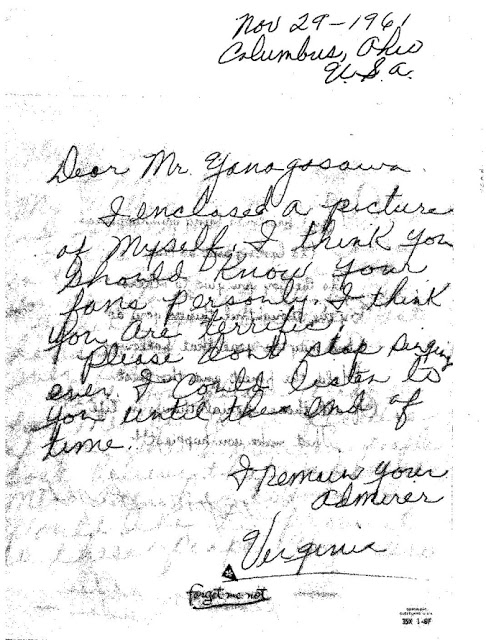 Nov 29-1961
Columbus, Ohio
U.S.A.
Dear Mr. Yanagosawa.
I enclosed a picture
of Myself. I think you
Should Know Your
fans personly. I think
you are terrific!
Please don't stop singing
ever I could listen to
you until the end of
time.
I remain your
admirer
Verginia
forget me not